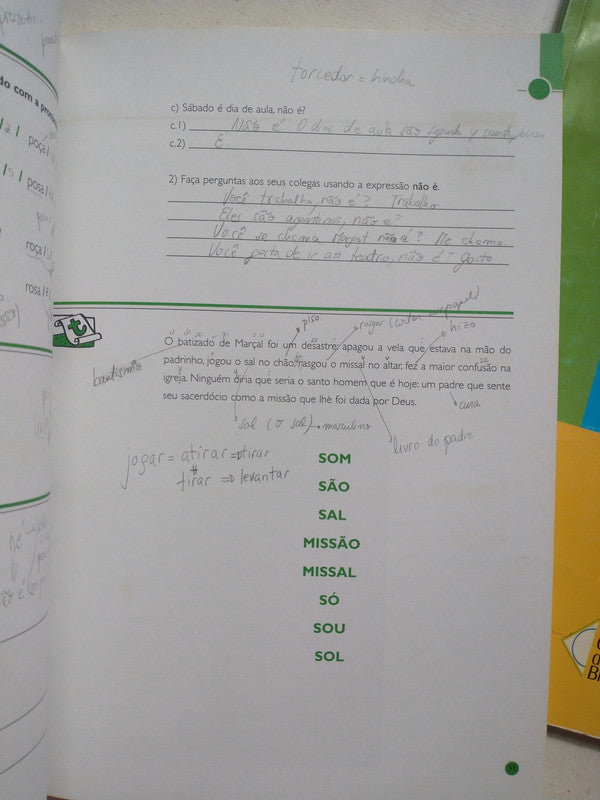 torcedor = hincha
c) Sábado é dia de aula, não é?
c.1) Não é. O dias de aula são segunda y
c.2) É
2) Faça perguntas aos seus colegas usando a expressão não é.
Você trabalha, não é? Trabalho
Eles são argentinos, não é?
Você se chama Margot não é? Me chamo.
Você gosta de ir ao teatro, não é? Gosto
piso
rasgar (cortar un papel)
hizo
t
O batizado de Marçal foi um desastre: apagou a vela que estava na mão do
padrinho, jogou o sal no chão, rasgou o missal no altar, fez a maior confusão na
igreja. Ninguém diria que seria o santo homem que é hoje: um padre que sente
seu sacerdócio como a missão que lhe foi dada por Deus.
bautismo
cura
sal (o sal) → masculino
livro do padre
jogar = atirar ⇒ tirar
≠
tirar ⇒ levantar
SOM
SÃO
SAL
MISSÃO
MISSAL
SÓ
SOU
SOL
poça
posa
roça
rosa